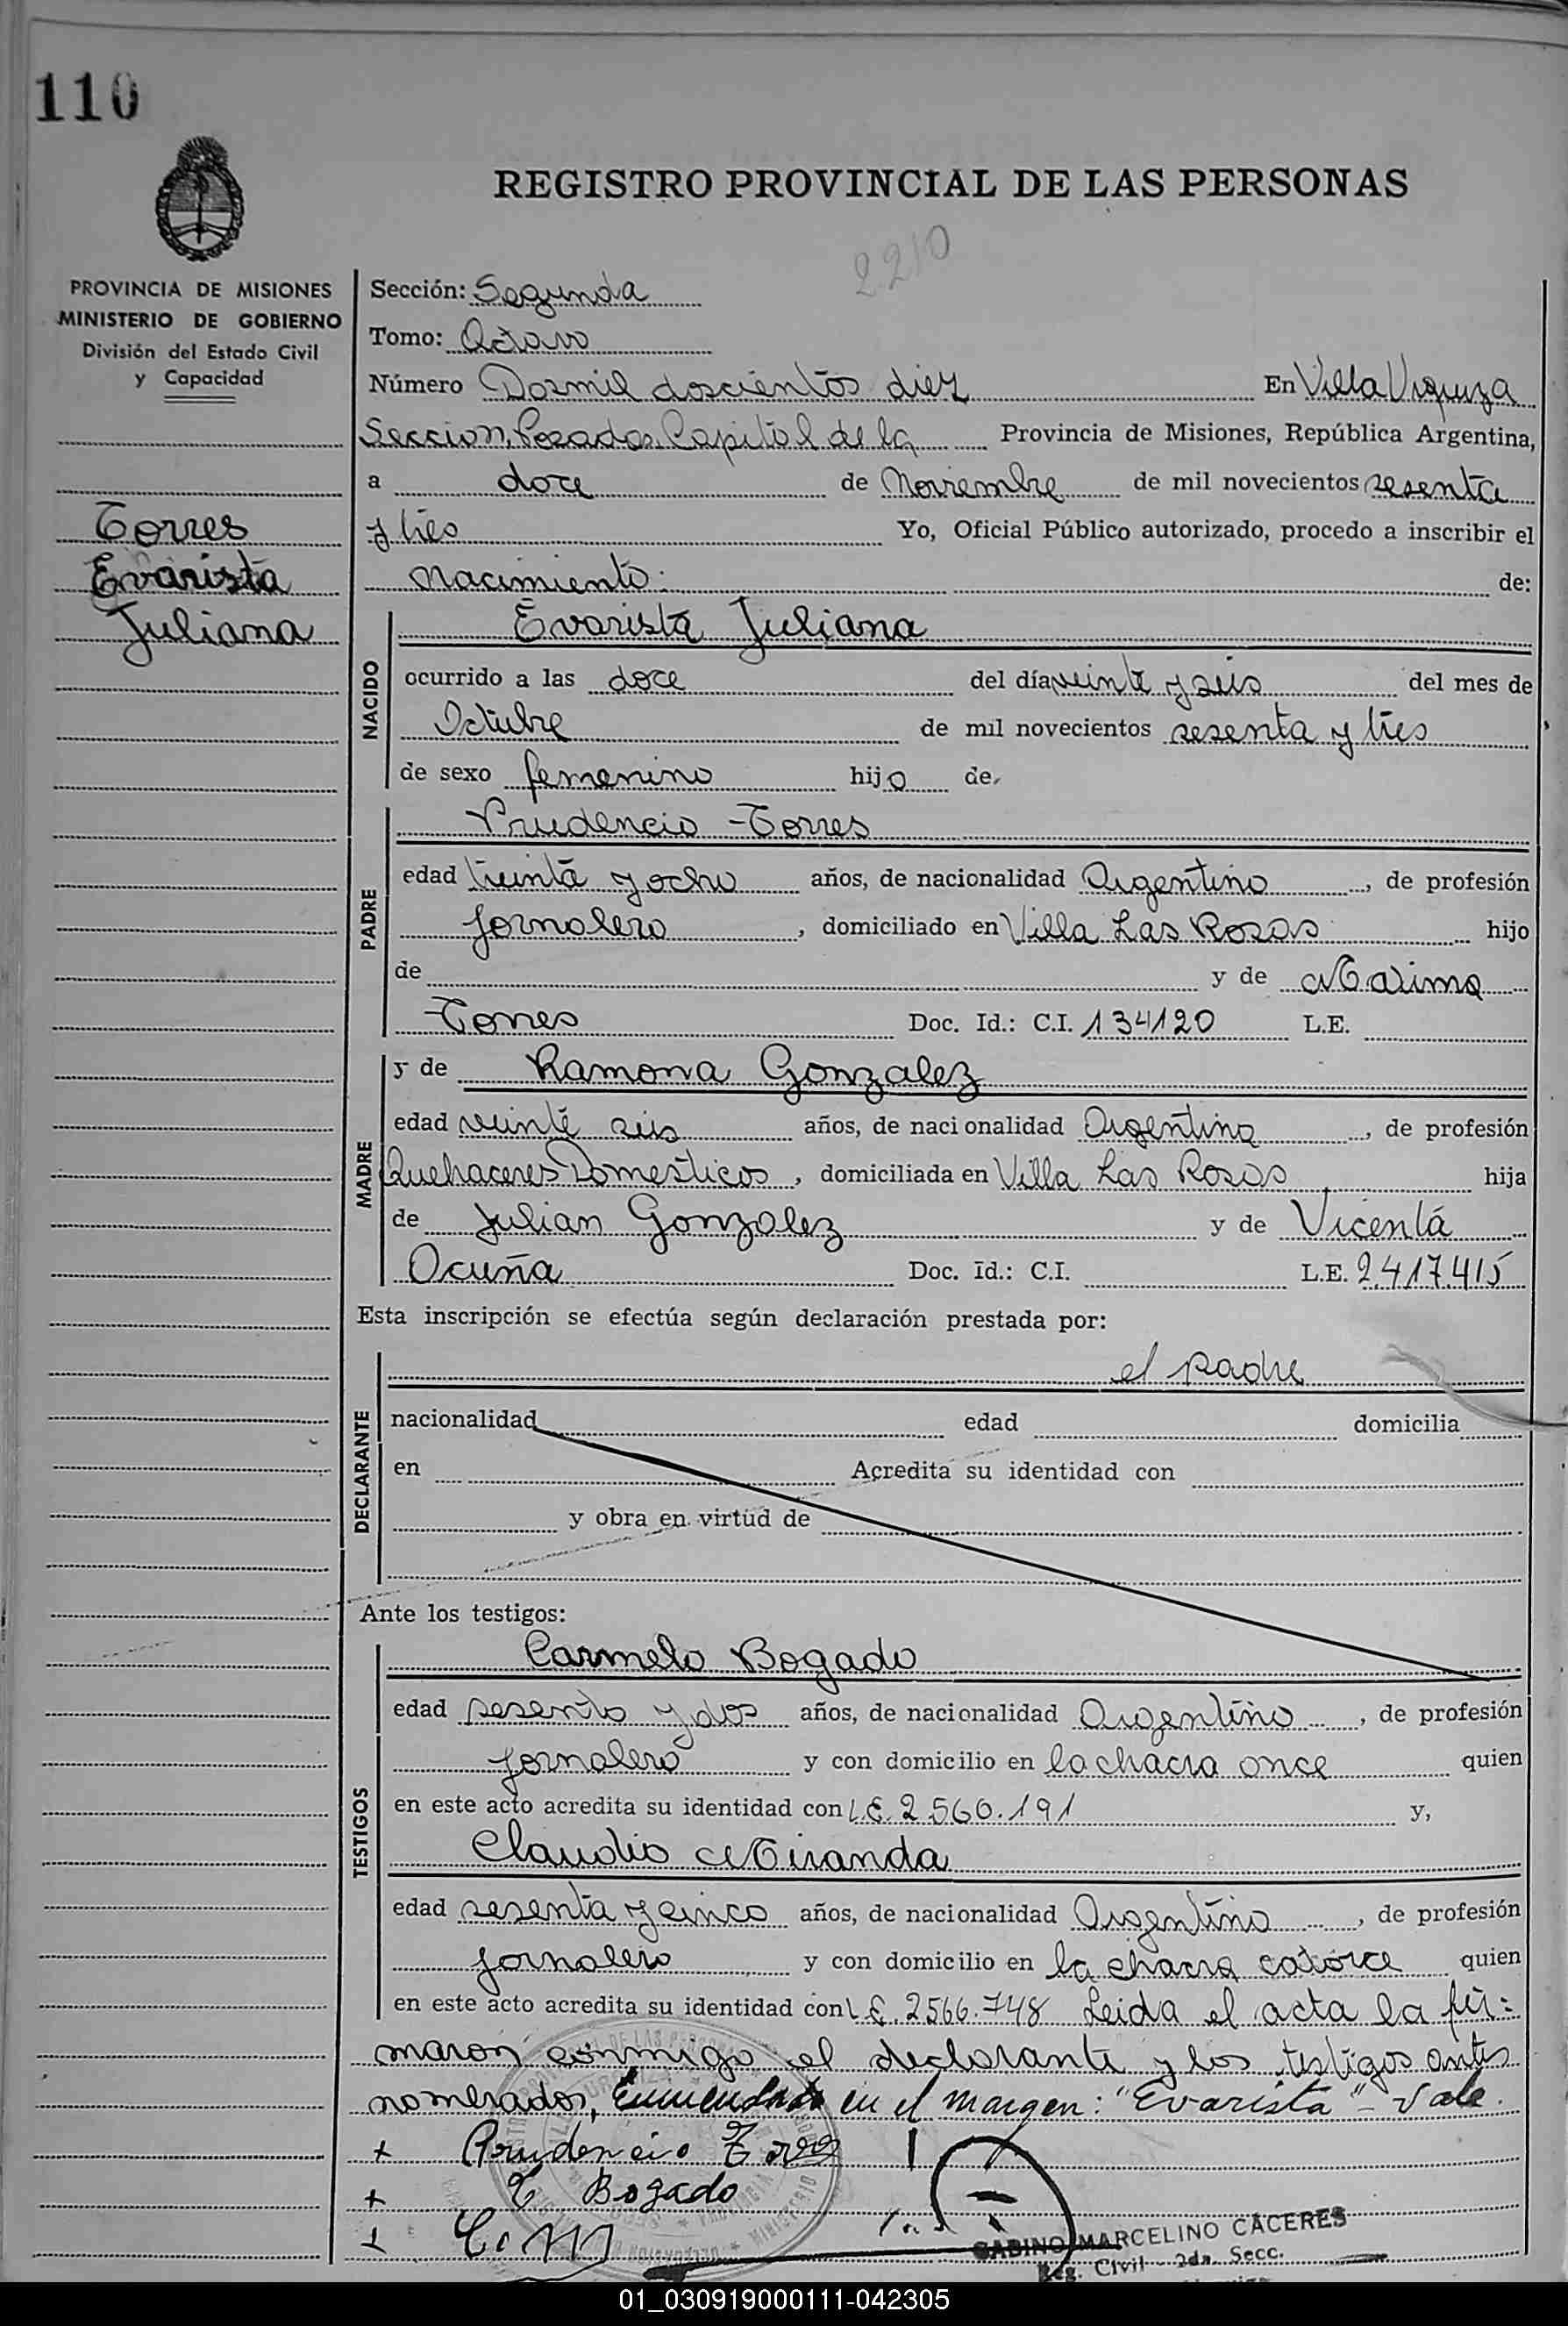 110
REGISTRO PROVINCIAL DE LAS PERSONAS
2210
PROVINCIA DE MISIONES
MINISTERIO DE GOBIERNO
División del Estado Civil
y Capacidad
Torres
Evarista
Juliana
Sección: Segunda
Tomo: Octavo
Número Dosmil doscientos diez En Villa Urquiza
Seccion, Posadas, Capital de la Provincia de Misiones, República Argentina,
a doce de Noviembre de mil novecientos sesenta
y tres Yo, Oficial Público autorizado, procedo a inscribir el
nacimiento: de:
NACIDO
Evarista Juliana
ocurrido a las doce del día veinte y seis del mes de
Octubre de mil novecientos sesenta y tres
de sexo femenino hijo de
PADRE
Prudencio Torres
edad treinta y ocho años, de nacionalidad Argentino, de profesión
jornalero, domiciliado en Villa Las Rosas hijo
de y de Marima
Torres Doc. Id.: C.I. 134120 L.E.
MADRE
y de Ramona Gonzalez
edad veinte seis años, de nacionalidad Argentina, de profesión
Quehaceres Domesticos, domiciliada en Villa Las Rosas hija
de Julian Gonzalez y de Vicenta
Ocuña Doc. Id.: C.I. L.E. 2.417.415
Esta inscripción se efectúa según declaración prestada por:
DECLARANTE
el padre
nacionalidad edad domicilia
en Acredita su identidad con
y obra en virtud de
Ante los testigos:
TESTIGOS
Carmelo Bogado
edad sesenta y dos años, de nacionalidad Argentino, de profesión
jornalero y con domicilio en la chacra once quien
en este acto acredita su identidad con L.E. 2.560.191 y,
Claudio Miranda
edad sesenta y cinco años, de nacionalidad Argentino, de profesión
jornalero y con domicilio en la chacra catorce quien
en este acto acredita su identidad con L.E. 2.566.748 Leida el acta la fir=
maron conmigo el declarante y los testigos antes
nomerados, Enmendado en el margen: "Evarista" - Vale.
+ Prudencio Torres
+ C Bogado
+ C. M
GABINO MARCELINO CACERES
Reg. Civil - 2da. Secc.
01_030919000111-042305